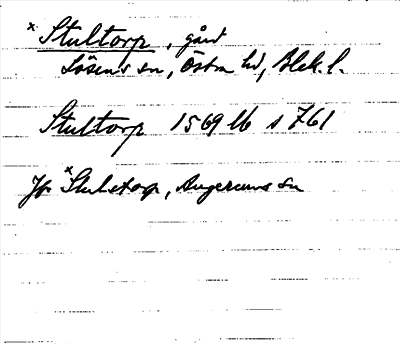 × Stultorp, gård
Lösens sn, Östra hd, Blek. l.
Stultorp 1569 lb s 761
Jfr × Stuletorp, Augerums sn